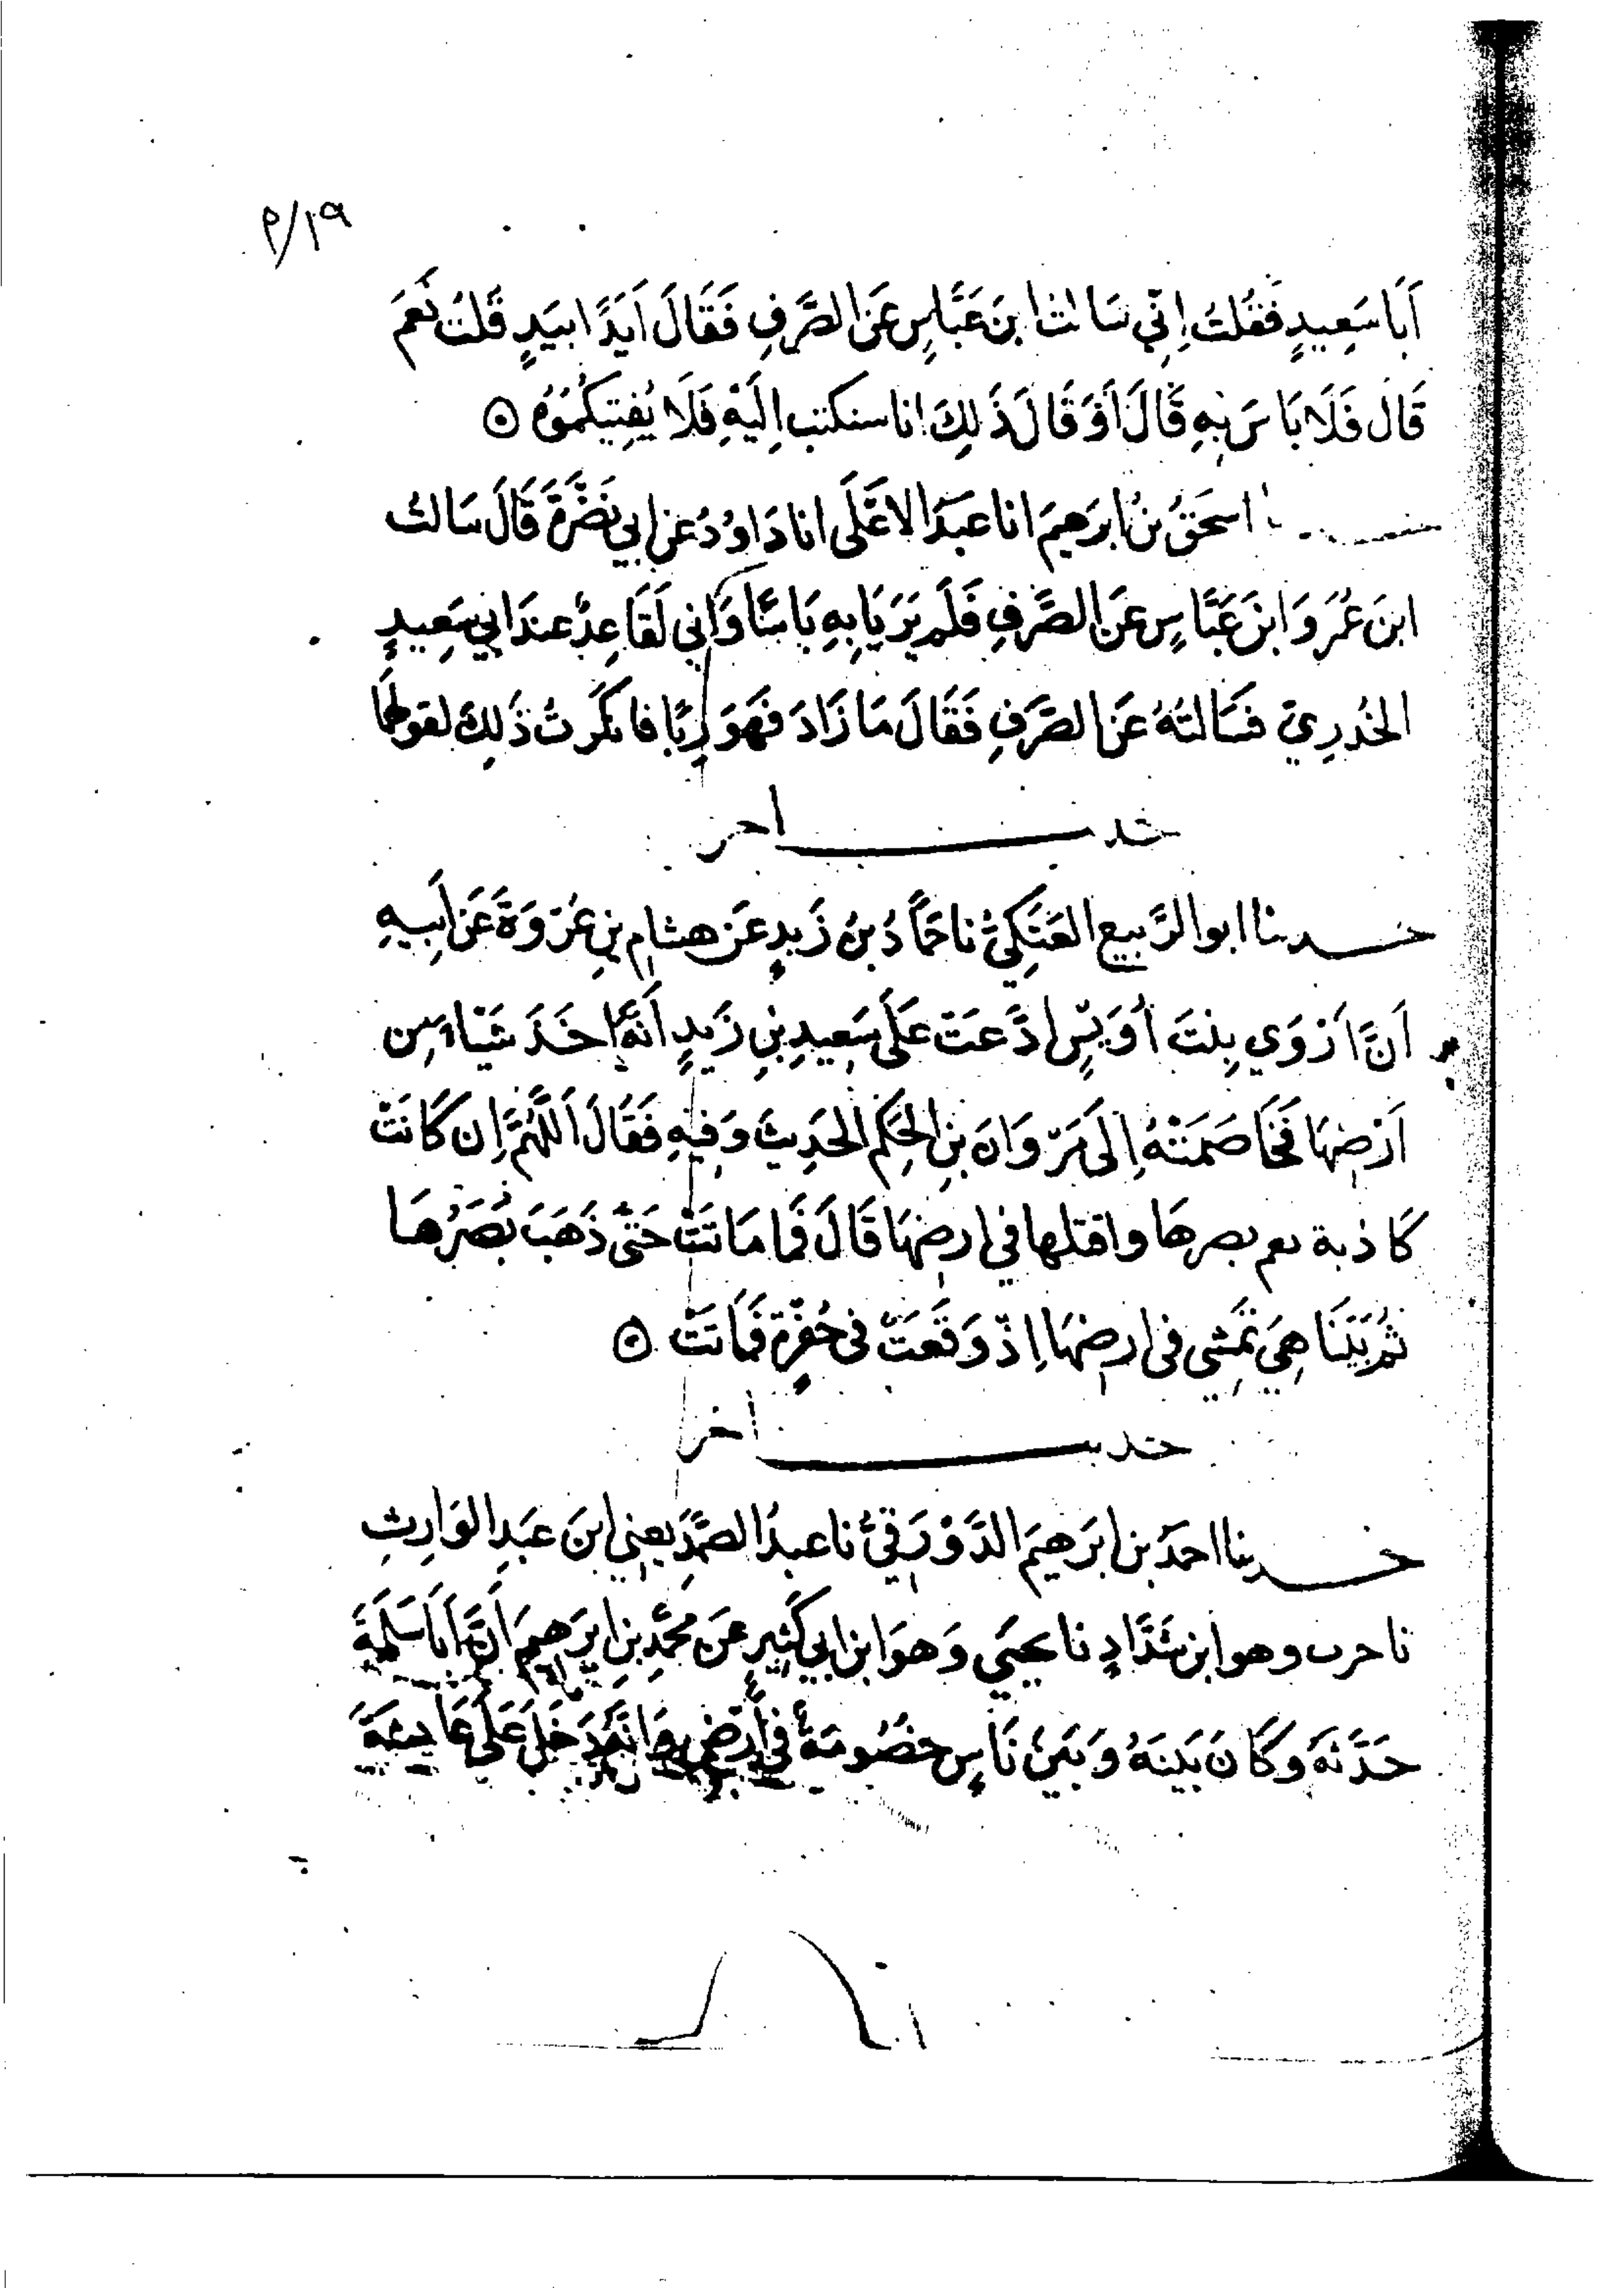 ٩/١٩
أَبَا سَعِيدٍ فَقُلتُ إِنّي سَالتُ ابنَ عَبَّاسٍ عَنِ الصَّرفِ فَقَالَ اَيَدًا بيَدٍ قُلتُ نَعَم
قَالَ فَلَا بَاسَ بِهِ قَالَ أَوَ قَالَ ذَلِكَ انا سنكتب إِلَيْهِ فَلَا يُفتِيكُمُوهُ ⊙
اسحقُ بنُ ابرَهِيمَ انا عبدُ الاعْلَى انا دَاوُدُ عن ابي نَضْرَةَ قَالَ سَالتُ
ابنَ عُمَرَ وَابنَ عَبَّاسٍ عَنِ الصَّرفِ فَلَم يَرَيَا بِهِ بَاسًا وَإني لَقَاعِدٌ عندَ ابي سَعِيدٍ
الخُدرِيّ فسَالتهُ عَنِ الصَّرَفِ فَقَالَ مَا زَادَ فهَوَ رِبًا فانكَرتُ ذَلِكَ لقولهما
حديث اخر
حدثنا ابو الرَّبيع العَتَكِيُّ نا حَمَّادُ بنُ زَيدٍ عَن هشامِ بنِ عُرْوَةَ عَن أبِيهِ
اَنَّ اَرْوَي بِنتَ أُوَيسٍ ادَّعَت عَلَى سَعِيدِ بنِ زَيدٍ أنَّهُ اخَذَ شَيْئًا مِن
اَرْضِهَا فَخَاصَمَتْهُ إِلَى مَرْوَانَ بنِ الحَكَمِ الحَدِيثَ وَفِيهِ فَقَالَ اَللَّهُمَّ إِن كَانَتْ
كَاذبة فعم بصرهَا واقتلها في ارضِهَا قَالَ فَمَا مَاتَتْ حَتَّى ذَهَبَ بَصَرُهَا
ثُم بَيْنَا هِيَ تَمْشِي في ارضِهَا إِذْ وَقَعَتْ في حُفْرَةٍ فَمَاتَتْ ⊙
حديث اخر
حدثنا احمَدُ بن ابرَهيمَ الدَّوْرَقِيُّ نا عبدُ الصَّمَدِ يعني ابنَ عبَدِ الوَارِثِ
نا حرب وهو ابن شَدَّادٍ نا يحيَي وَهوَ ابن ابي كَثِيرٍ عَن محمَّدِ بنِ ابرَهيمَ أنَّ أبَا سَلَمَةَ
حَدَّثهُ وكَانَ بَينَهُ وَبَينَ نَاسٍ خصُومَةٌ في أرضٍ وَانَّهُ دَخَلَ عَلَى عَايشَةَ